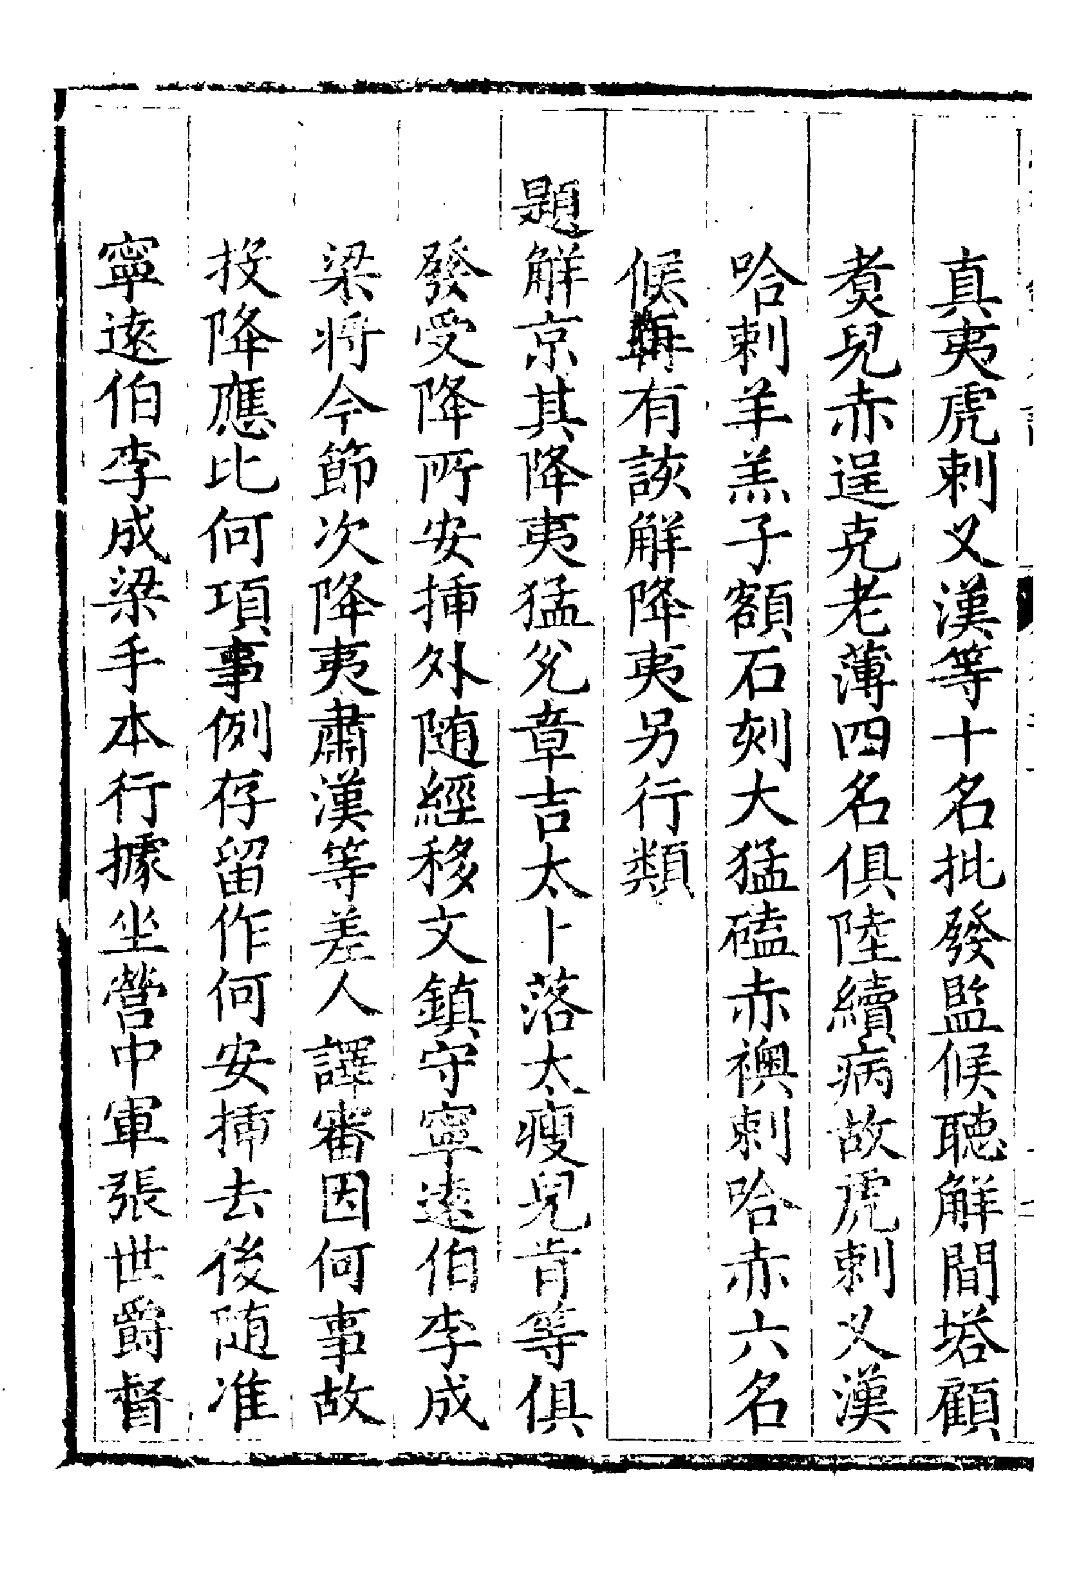 真夷虎剌义漢等十名批發監候聽解間塔顧
煑兒赤逞克老薄四名俱陸續病故虎剌义漢
哈剌羊羔子額石刻大猛磕赤襖剌哈赤六名
候有該解降夷另行類
題解京其降夷猛兊章吉太卜落太瘦兒肯等俱
發受降所安揷外随經移文鎮守寧遠伯李成
梁將今節次降夷肅漢等差人譯審因何事故
投降應比何項事例存留作何安揷去後随准
寧遠伯李成梁手本行據坐營中軍張世爵督